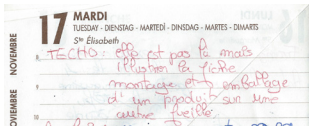 17 MARDI
TUESDAY - DIENSTAG - MARTEDÌ - DINSDAG - MARTES - DIMARTS
Ste Élisabeth
NOVEMBRE
8 TECHO: est pas là mais
illustrer la fiche
9 montage et emballage
d'un produit sur une
10 autre feuille.
NOVIEMBRE